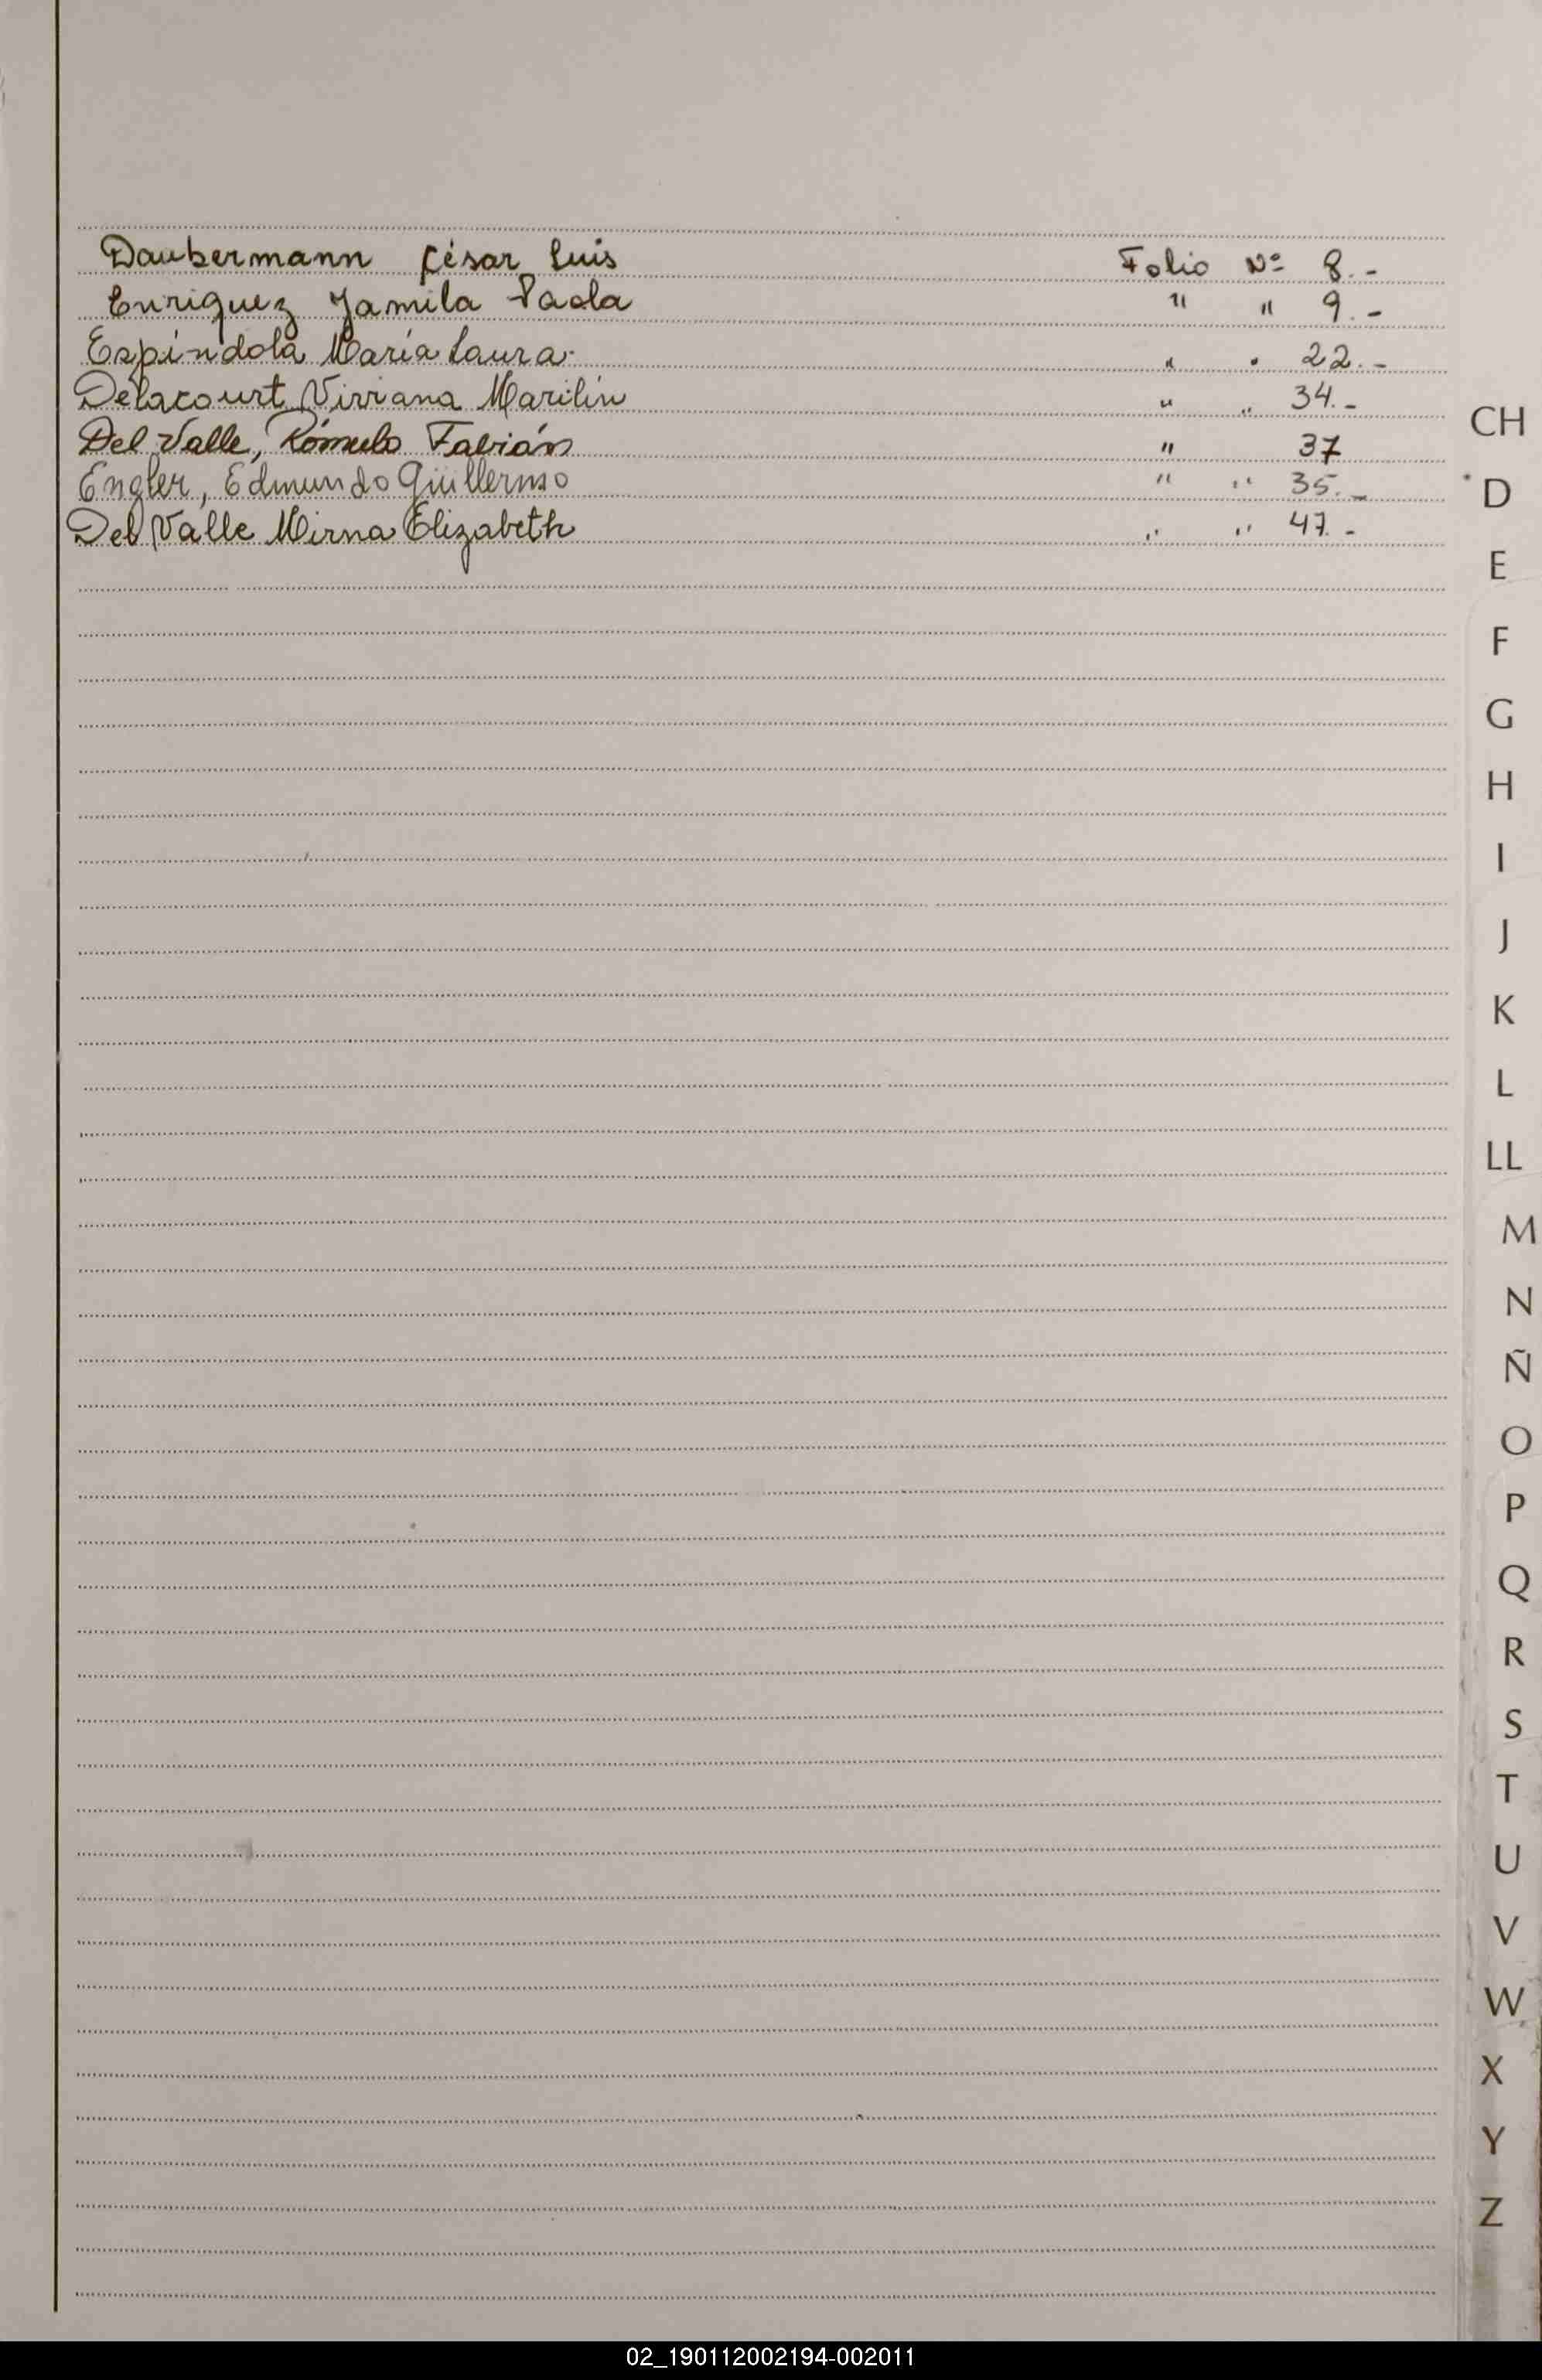 Daubermann César Luis Folio Nº 8.-
Enriquez Yamila Paola " " 9.-
Espíndola María Laura. " " 22.-
Delacourt Viviana Marilín " " 34.-
Del Valle, Rómulo Fabián " 37
Engler, Edmundo Guillermo " " 35.-
Del Valle Mirna Elizabeth " " 47.-
CH
D
E
F
G
H
I
J
K
L
LL
M
N
Ñ
O
P
Q
R
S
T
U
V
W
X
Y
Z
02_190112002194-002011